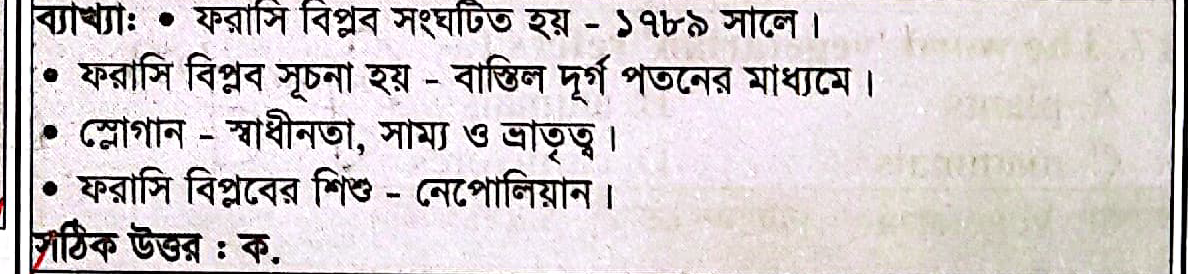 ব্যাখ্যা: • ফরাসি বিপ্লব সংঘটিত হয় - ১৭৮৯ সালে।
• ফরাসি বিপ্লব সূচনা হয় - বাস্তিল দূর্গ পতনের মাধ্যমে।
• স্লোগান - স্বাধীনতা, সাম্য ও ভ্রাতৃত্ব।
• ফরাসি বিপ্লবের শিশু - নেপোলিয়ান।
সঠিক উত্তর : ক.